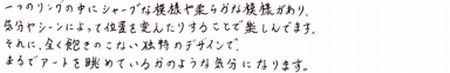 一つのリングの中にシャープな模様や柔らかな模様があり、
気分やシーンによって位置を変えたりすることで楽しんでます。
それに、全く飽きのこない独特のデザインで、
まるでアートを眺めているかのような気分になります。